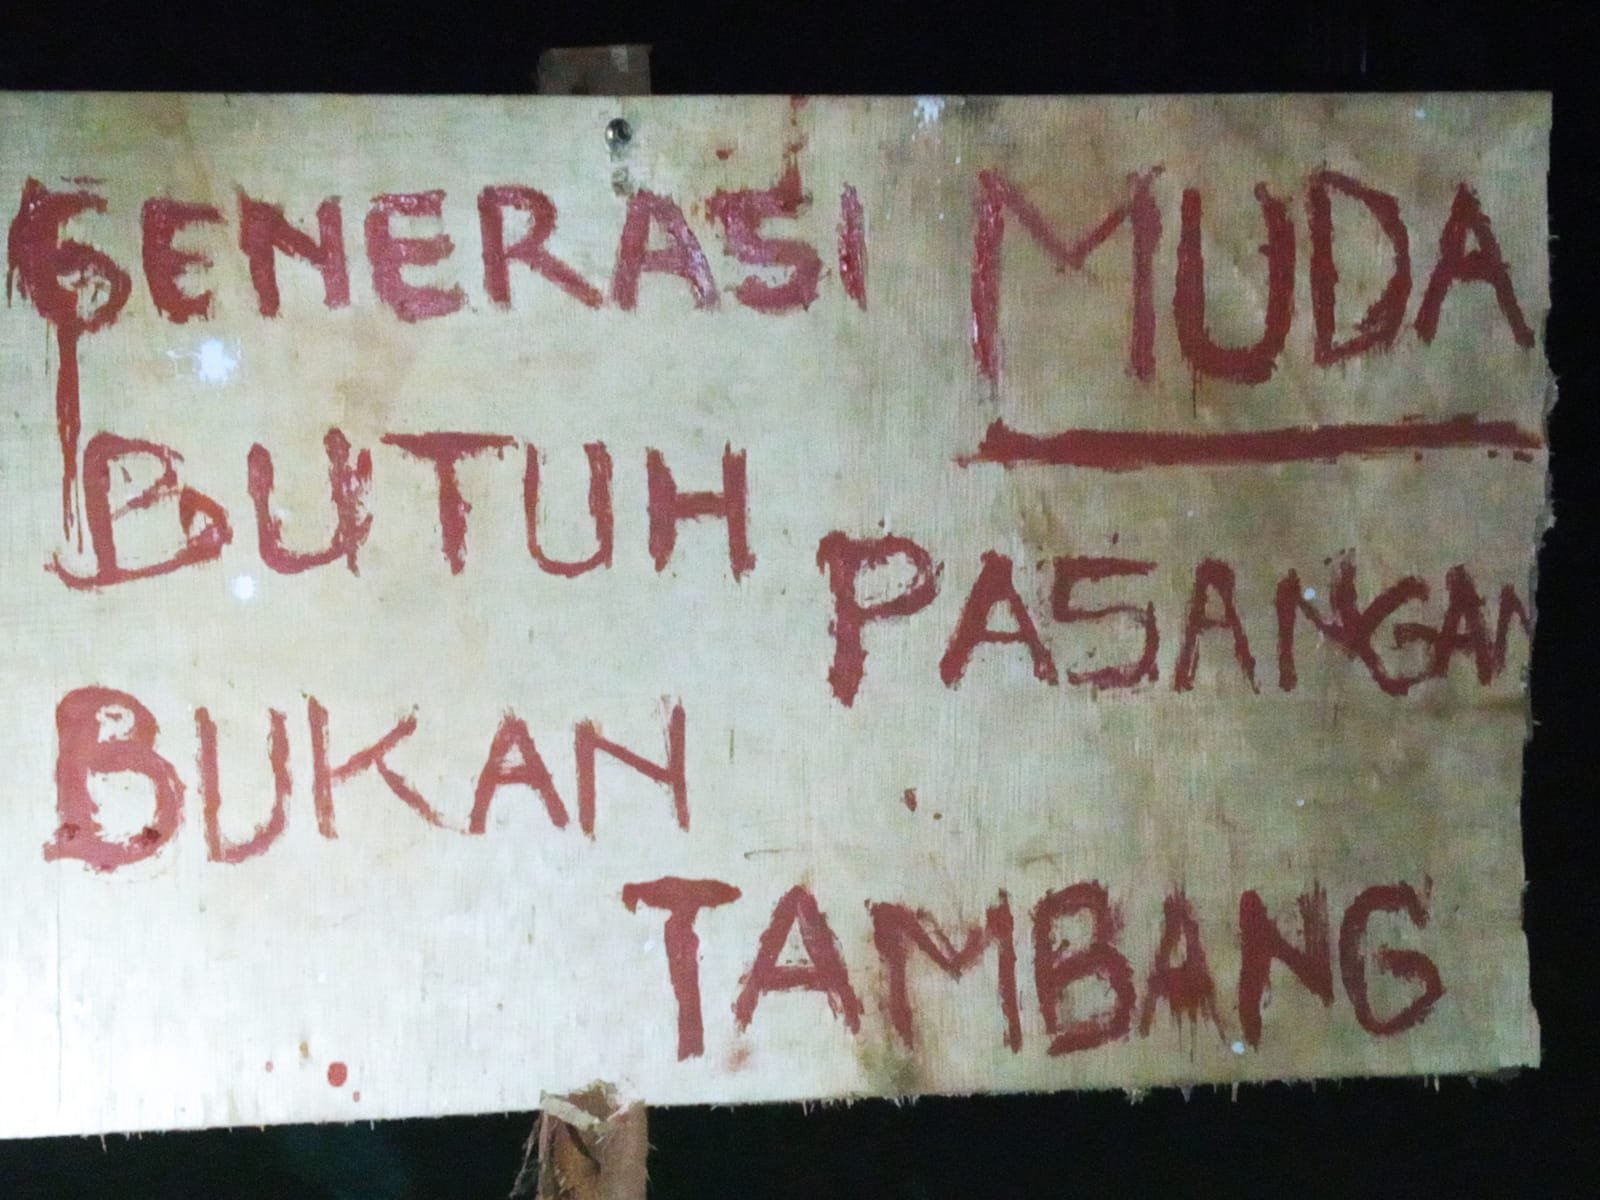 GENERASI MUDA
BUTUH PASANGAN
BUKAN
TAMBANG